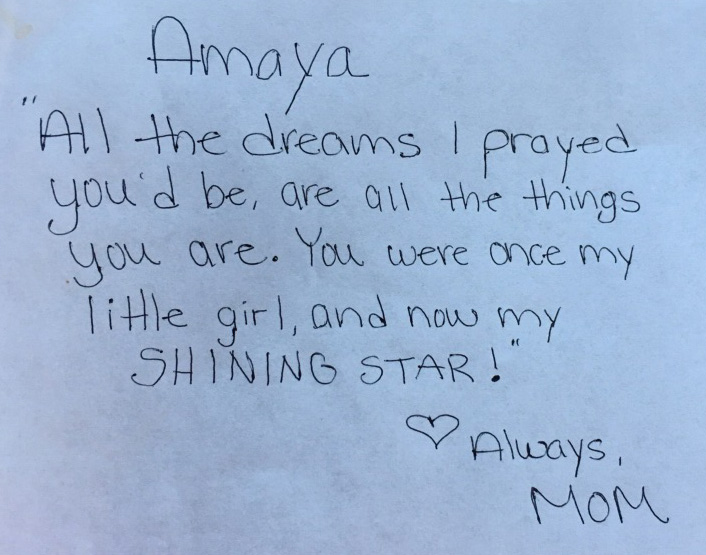 Amaya
"All the dreams I prayed
you'd be, are all the things
you are. You were once my
little girl, and now my
SHINING STAR!"
♡ Always,
MOM